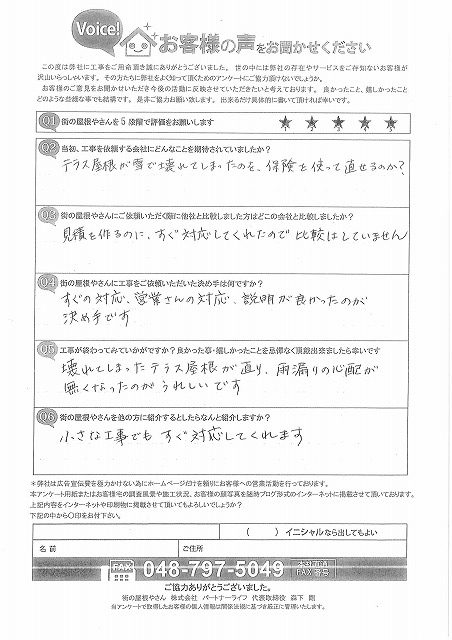 Voice!
お客様の声をお聞かせください
この度は弊社に工事をご用命頂き誠にありがとうございました。世の中には弊社の存在やサービスをご存知ないお客様が
沢山いらっしゃいます。その方たちに弊社をよく知って頂くためのアンケートにご協力頂けないでしょうか。
お客様のご意見をお聞かせいただき今後の活動に反映させていただきたいと考えております。良かったこと、嬉しかったこと
どのような些細な事でも結構です。是非ご協力お願い致します。出来るだけ具体的に書いて頂ければ幸いです。
Q1 街の屋根やさんを5段階で評価をお願いします ★ ★ ★ ★ ★
Q2 当初、工事を依頼する会社にどんなことを期待されていましたか?
テラス屋根が雪で壊れてしまったのを、保険を使って直せるのか?
Q3 街の屋根やさんにご依頼いただく際に他社と比較しました方はどこの会社と比較しましたか?
見積を作るのに、すぐ対応してくれたので比較はしていません
Q4 街の屋根やさんに工事をご依頼いただいた決め手は何ですか?
すぐの対応、営業さんの対応、説明が良かったのが
決め手です
Q5 工事が終わってみていかがですか?良かった事・嬉しかったことを忌憚なく頂戴出来ましたら幸いです
壊れてしまったテラス屋根が直り、雨漏りの心配が
無くなったのがうれしいです
Q6 街の屋根やさんを他の方に紹介するとしたらなんと紹介しますか?
小さな工事でもすぐ対応してくれます
*弊社は広告宣伝費を極力かけない為にホームページだけを頼りにお客様への営業活動を行っております。
本アンケート用紙またはお客様宅の調査風景や施工状況、お客様の顔写真を随時ブログ形式のインターネットに掲載させて頂いております。
上記内容をインターネットや印刷物に掲載させて頂いてもよろしいでしょうか?
下記の中から〇印をお付下さい。
( ) イニシャルなら出してもよい
名前 ご住所
FAX 048-797-5049 本社直通 FAX番号
ご協力ありがとうございました。
街の屋根やさん 株式会社 パートナーライフ 代表取締役 森下 剛
当アンケートで取得したお客様の個人情報は関係法規に基づき厳正に管理いたします。